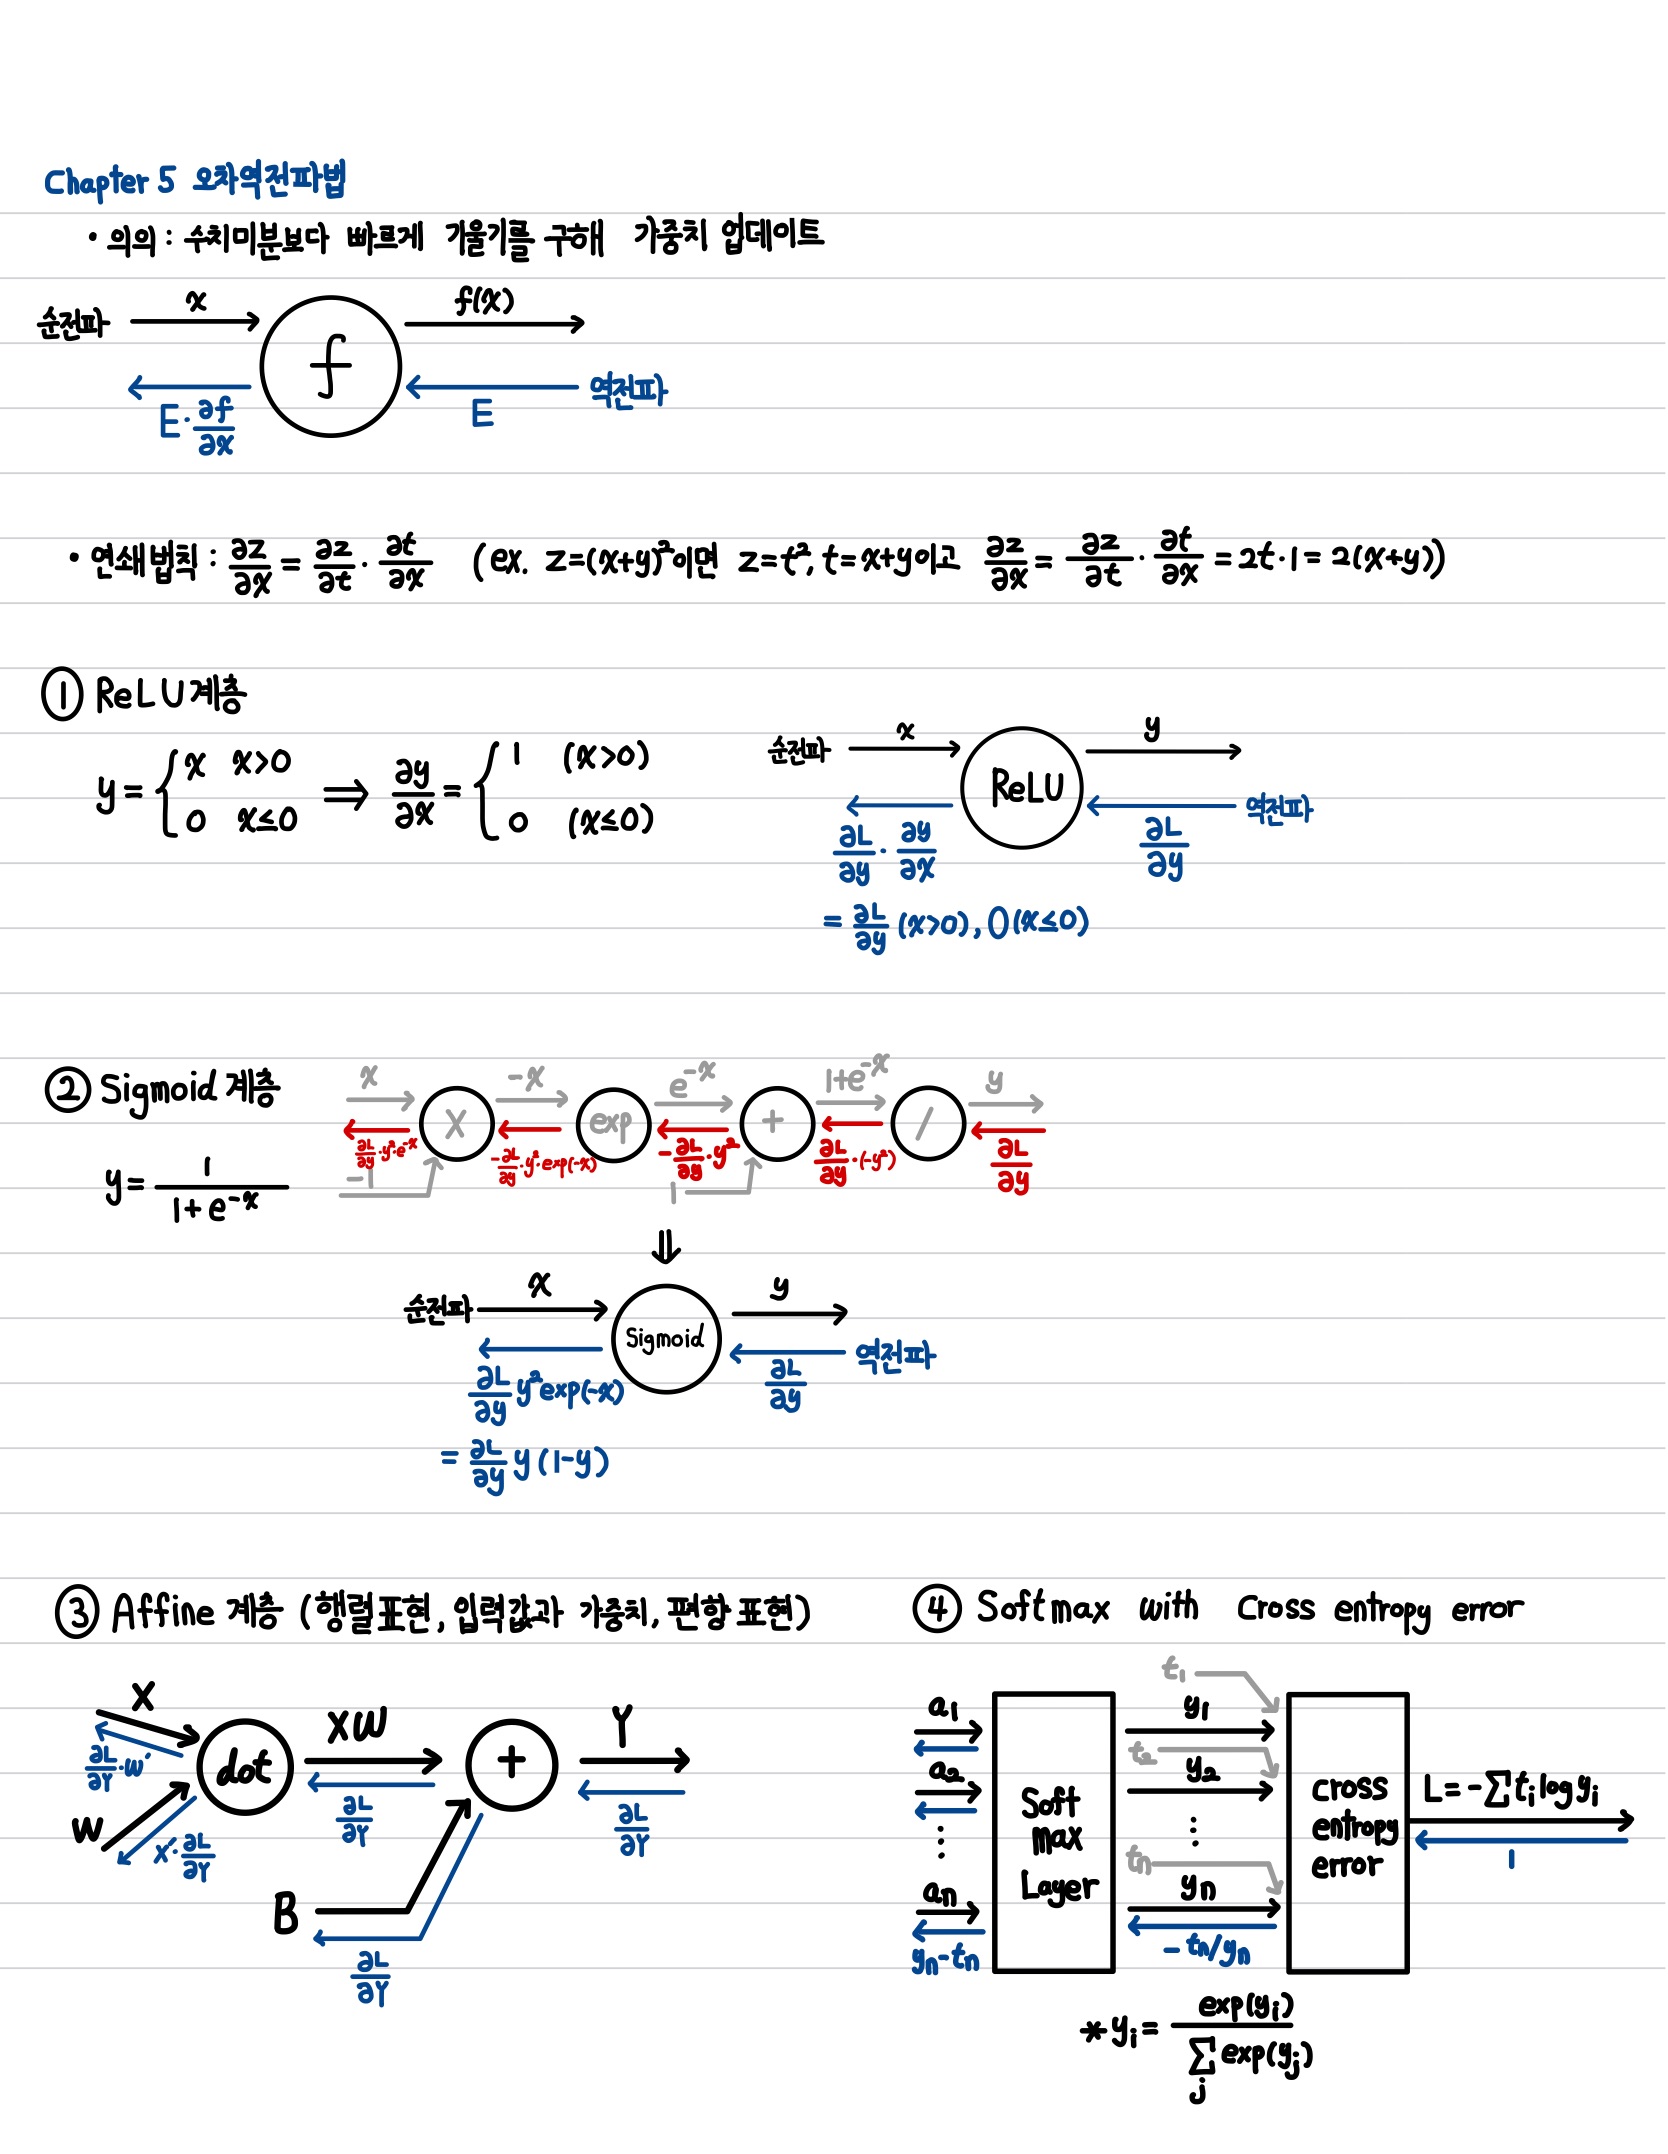 Chapter 5 오차역전파법
• 의의 : 수치미분보다 빠르게 기울기를 구해 가중치 업데이트
순전파 x f f(x)
E·∂f/∂x E 역전파
• 연쇄법칙 : ∂z/∂x = ∂z/∂t · ∂t/∂x (ex. z=(x+y)²이면 z=t², t=x+y이고 ∂z/∂x = ∂z/∂t · ∂t/∂x = 2t·1 = 2(x+y))
① ReLU 계층
y = { x x>0
0 x≤0
⟹ ∂y/∂x = { 1 (x>0)
0 (x≤0)
순전파 x ReLU y
∂L/∂y · ∂y/∂x ∂L/∂y 역전파
= ∂L/∂y (x>0), 0 (x≤0)
② Sigmoid 계층
y = 1/(1+e^-x)
x × -x exp e^-x + 1+e^-x / y
∂L/∂y·y²·e^-x -∂L/∂y·y²·exp(-x) -∂L/∂y·y² ∂L/∂y·(-y²) ∂L/∂y
-1 1
⇓
순전파 x Sigmoid y
∂L/∂y y²exp(-x) ∂L/∂y 역전파
= ∂L/∂y y(1-y)
③ Affine 계층 (행렬표현, 입력값과 가중치, 편향 표현)
X dot XW + Y
∂L/∂Y·W' ∂L/∂Y ∂L/∂Y
W X'·∂L/∂Y
B
∂L/∂Y
④ Softmax with Cross entropy error
t₁
a₁ y₁
t₂
a₂ y₂
⋮ ⋮
tn
an yn
yn-tn -tn/yn
Soft
max
Layer
cross
entropy
error
L = -∑ tᵢ log yᵢ
1
* yᵢ = exp(yᵢ)/∑j exp(yj)